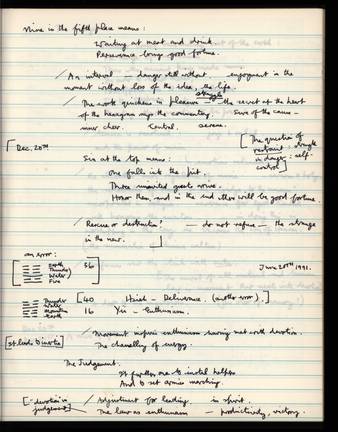 Nine in the fifth place means:
Waiting at meat and drink.
Perseverance brings good fortune.
/ An interval — danger still without enjoyment in the
moment without loss of the idea, the life.
struggle
/ The work quickens in pleasure — the secret at the heart
of the hexagram says the commentary. Sure of the cause —
inner cheer. Control. serene.
[The question of
restraint: struggle
in danger: self-
control]
[Dec. 20th
Six at the top means:
One falls into the pit.
Three uninvited guests arrive.
Honor them, and in the end there will be good fortune.
/ Rescue or destruction? — do not refuse — the strange
in the new. ]
an error:
Earth
Thunder
Water
Fire
36
June 20th 1991.
Thunder
Water
Mountain
Earth
[40 Hsieh - Deliverance. (another error).]
16 Yü - Enthusiasm.
/ Movement inspires enthusiasm having met with devotion.
The channelling of energy.
The Judgement.
It furthers one to install helpers
And to set armies marching.
[- devotion in
judgement]
/ Adjustment for leading. in spirit.
The law as enthusiasm — productivity, victory.